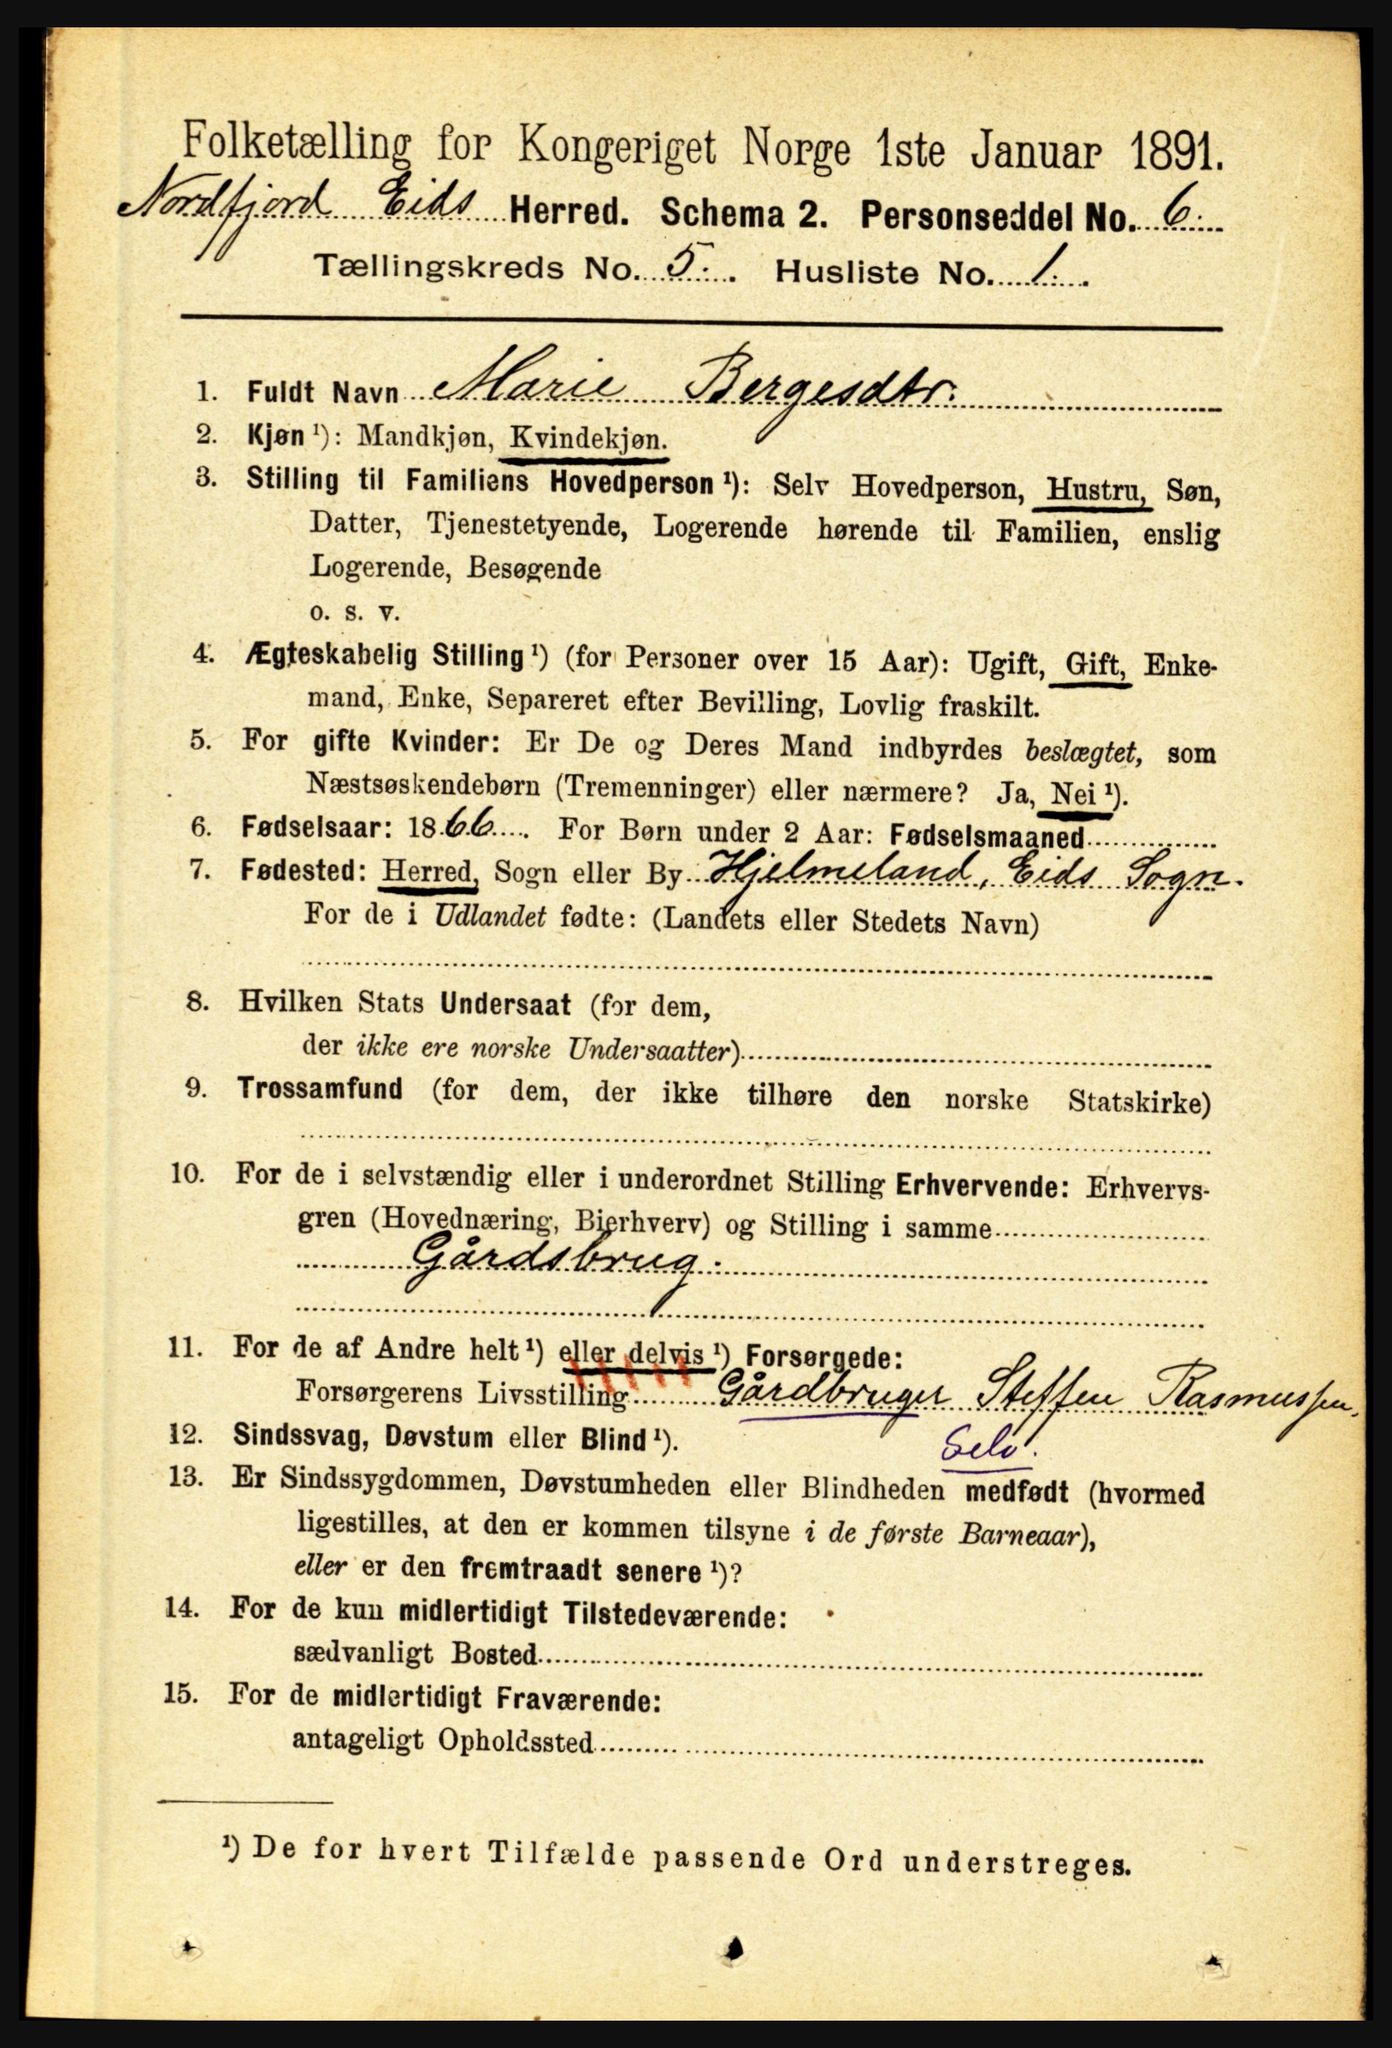 Folketælling for Kongeriget Norge 1ste Januar 1891.
Nordfjord Eids Herred. Schema 2. Personseddel No. 6.
Tællingskreds No. 5. Husliste No. 1.
1. Fuldt Navn Marie Bergesdtr.
2. Kjøn¹): Mandkjøn, Kvindekjøn.
3. Stilling til Familiens Hovedperson¹): Selv Hovedperson, Hustru, Søn,
Datter, Tjenestetyende, Logerende hørende til Familien, enslig
Logerende, Besøgende
o. s. v.
4. Ægteskabelig Stilling¹) (for Personer over 15 Aar): Ugift, Gift, Enke-
mand, Enke, Separeret efter Bevilling, Lovlig fraskilt.
5. For gifte Kvinder: Er De og Deres Mand indbyrdes beslægtet, som
Næstsøskendebørn (Tremenninger) eller nærmere? Ja, Nei¹).
6. Fødselsaar: 1866. For Børn under 2 Aar: Fødselsmaaned
7. Fødested: Herred, Sogn eller By Hjelmeland, Eids Sogn.
For de i Udlandet fødte: (Landets eller Stedets Navn)
8. Hvilken Stats Undersaat (for dem,
der ikke ere norske Undersaatter)
9. Trossamfund (for dem, der ikke tilhøre den norske Statskirke)
10. For de i selvstændig eller i underordnet Stilling Erhvervende: Erhvervs-
gren (Hovednæring, Bierhverv) og Stilling i samme
Gårdsbrug.
11. For de af Andre helt¹) eller delvis¹) Forsørgede:
Forsørgerens Livsstilling Gårdbruger Steffen Rasmussen.
12. Sindssvag, Døvstum eller Blind¹). Selv.
13. Er Sindssygdommen, Døvstumheden eller Blindheden medfødt (hvormed
ligestilles, at den er kommen tilsyne i de første Barneaar),
eller er den fremtraadt senere¹)?
14. For de kun midlertidigt Tilstedeværende:
sædvanligt Bosted
15. For de midlertidigt Fraværende:
antageligt Opholdssted
¹) De for hvert Tilfælde passende Ord understreges.